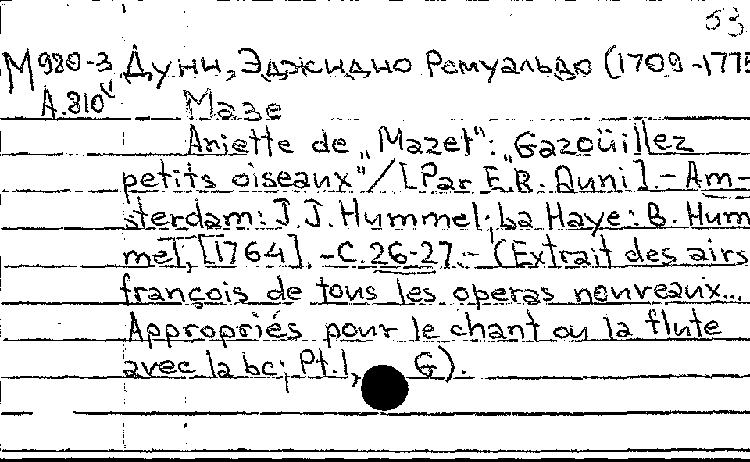 53
М 980-3 Дуни, Эджидио Ромуальдо (1709-1775
А.810 Мазе
Ariette de „Mazet": „Gazoüillez
petits oiseaux"/[Par E.R. Duni].- Am-
sterdam: J.J. Hummel; La Haye: B. Hum
mel, [1764]. -C.26-27.- (Extrait des airs
françois de tous les operas nouveaux...
Appropriés pour le chant ou la flute
avec la bc; Pt.1, G).